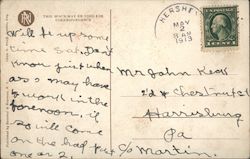 THIS SPACE MAY BE USED FOR CORRESPONDENCE
HERSHEY
MAY
2
8 AM
1913
Will be up some
time Sat. Don't
know just when
as I may have
to work in the
forenoon, if
so will come
on the
one or 2.
Mr John
2d & Chestnut st
Harrisburg
Pa
C/o Martin.